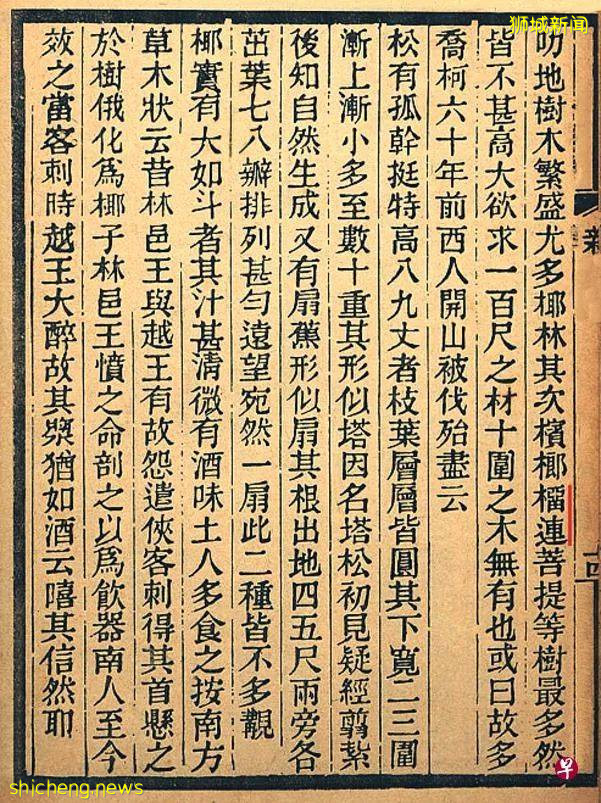 狮城新闻
叻地樹木繁盛尤多椰林其次檳榔榴連菩提等樹最多然
皆不甚高大欲求一百尺之材十圍之木無有也或曰故多
喬柯六十年前西人開山被伐殆盡云
松有孤幹挺特高八九丈者枝葉層層皆圓其下寬二三圍
漸上漸小多至數十重其形似塔因名塔松初見疑經翦紮
後知自然生成又有扇蕉形似扇其根出地四五尺兩旁各
茁葉七八瓣排列甚勻遠望宛然一扇此二種皆不多覯
椰實有大如斗者其汁甚清微有酒味土人多食之按南方
草木狀云昔林邑王與越王有故怨遣俠客刺得其首懸之
於樹俄化爲椰子林邑王憤之命剖之以爲飲器南人至今
效之當客刺時越王大醉故其漿猶如酒云嘻其信然耶
早
shicheng.news